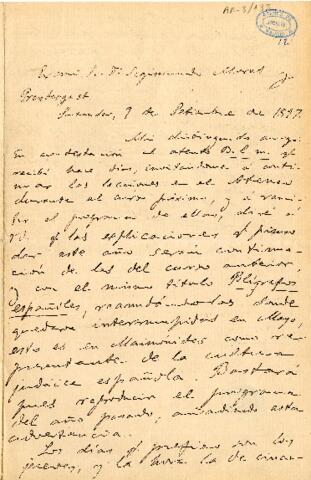 Excmo. Sr. D. Segismundo Moret y
Prendergast
Santander, 9 de Setiembre de 1897.
Mi distinguido amigo:
En contestación al atento B.L.M. q.
recibí hace días, invitándome á conti-
nuar las lecciones en el Ateneo
durante el curso próximo, y á remi-
tir el programa de ellas, diré á
Vd. q. las explicaciones q. pienso
dar este año serán continua-
ción de las del curso anterior,
y con el mismo título Polígrafos
españoles, reanudándolas donde
quedaron interrumpidas en Mayo,
esto es en Maimónides como re-
presentante de la cultura
judáica española. Bastará
pues reproducir el programa
del año pasado, añadiendo esta
advertencia.
Los días q. prefiero son los
jueves, y la hora la de cinco